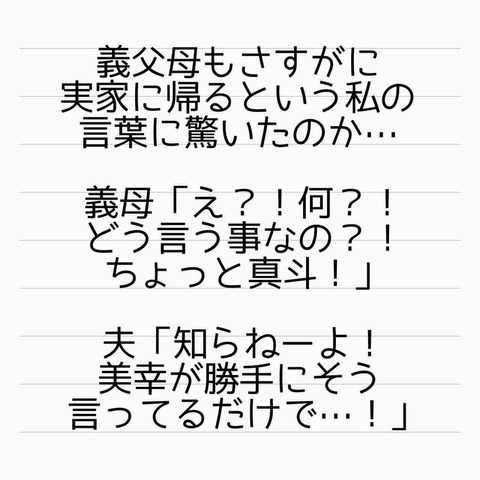 義父母もさすがに
実家に帰るという私の
言葉に驚いたのか…
義母「え？！何？！
どう言う事なの？！
ちょっと真斗！」
夫「知らねーよ！
美幸が勝手にそう
言ってるだけで…！」